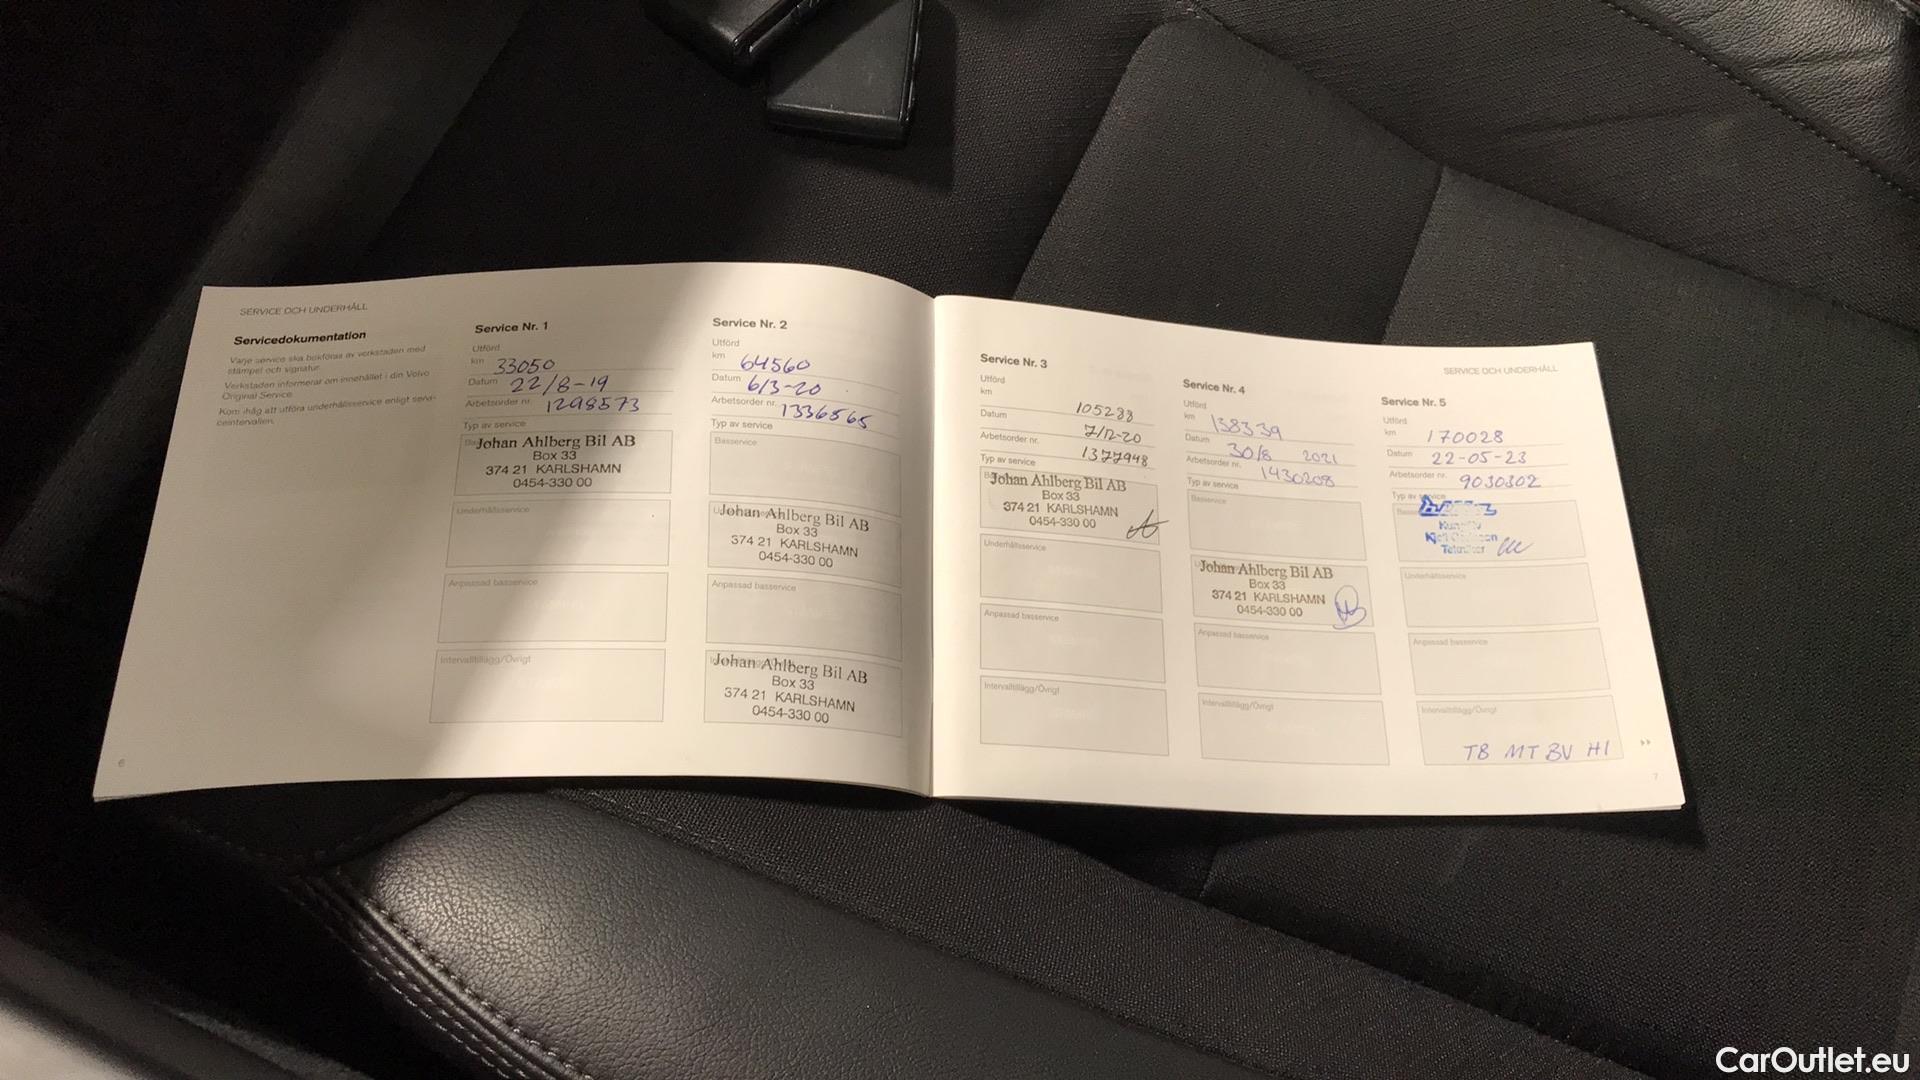 SERVICE OCH UNDERHÅLL
Servicedokumentation
Varje service ska bokföras av verkstaden med
stämpel och signatur.
Verkstaden informerar om innehållet i din Volvo
Original Service.
Kom ihåg att utföra underhållsservice enligt serv-
iceintervallen.
6
Service Nr. 1
Utförd
km 33050
Datum 22/8-19
Arbetsorder nr. 1298573
Typ av service
Johan Ahlberg Bil AB
Box 33
374 21 KARLSHAMN
0454-330 00
Underhållsservice
Anpassad basservice
Intervalltillägg/Övrigt
Service Nr. 2
Utförd
km 64560
Datum 6/3-20
Arbetsorder nr. 1336565
Typ av service
Basservice
Johan Ahlberg Bil AB
Box 33
374 21 KARLSHAMN
0454-330 00
Anpassad basservice
Johan Ahlberg Bil AB
Box 33
374 21 KARLSHAMN
0454-330 00
Service Nr. 3
Utförd
km 105288
Datum 7/12-20
Arbetsorder nr. 1377948
Typ av service
Johan Ahlberg Bil AB
Box 33
374 21 KARLSHAMN
0454-330 00
Underhållsservice
Anpassad basservice
Intervalltillägg/Övrigt
Service Nr. 4
Utförd
km 138339
Datum 30/8 2021
Arbetsorder nr. 1430208
Typ av service
Basservice
Johan Ahlberg Bil AB
Box 33
374 21 KARLSHAMN
0454-330 00
Anpassad basservice
Intervalltillägg/Övrigt
SERVICE OCH UNDERHÅLL
Service Nr. 5
Utförd
km 170028
Datum 22-05-23
Arbetsorder nr. 9030302
Typ av service
Underhållsservice
Anpassad basservice
Intervalltillägg/Övrigt
TB MT BV HI
7
CarOutlet.eu